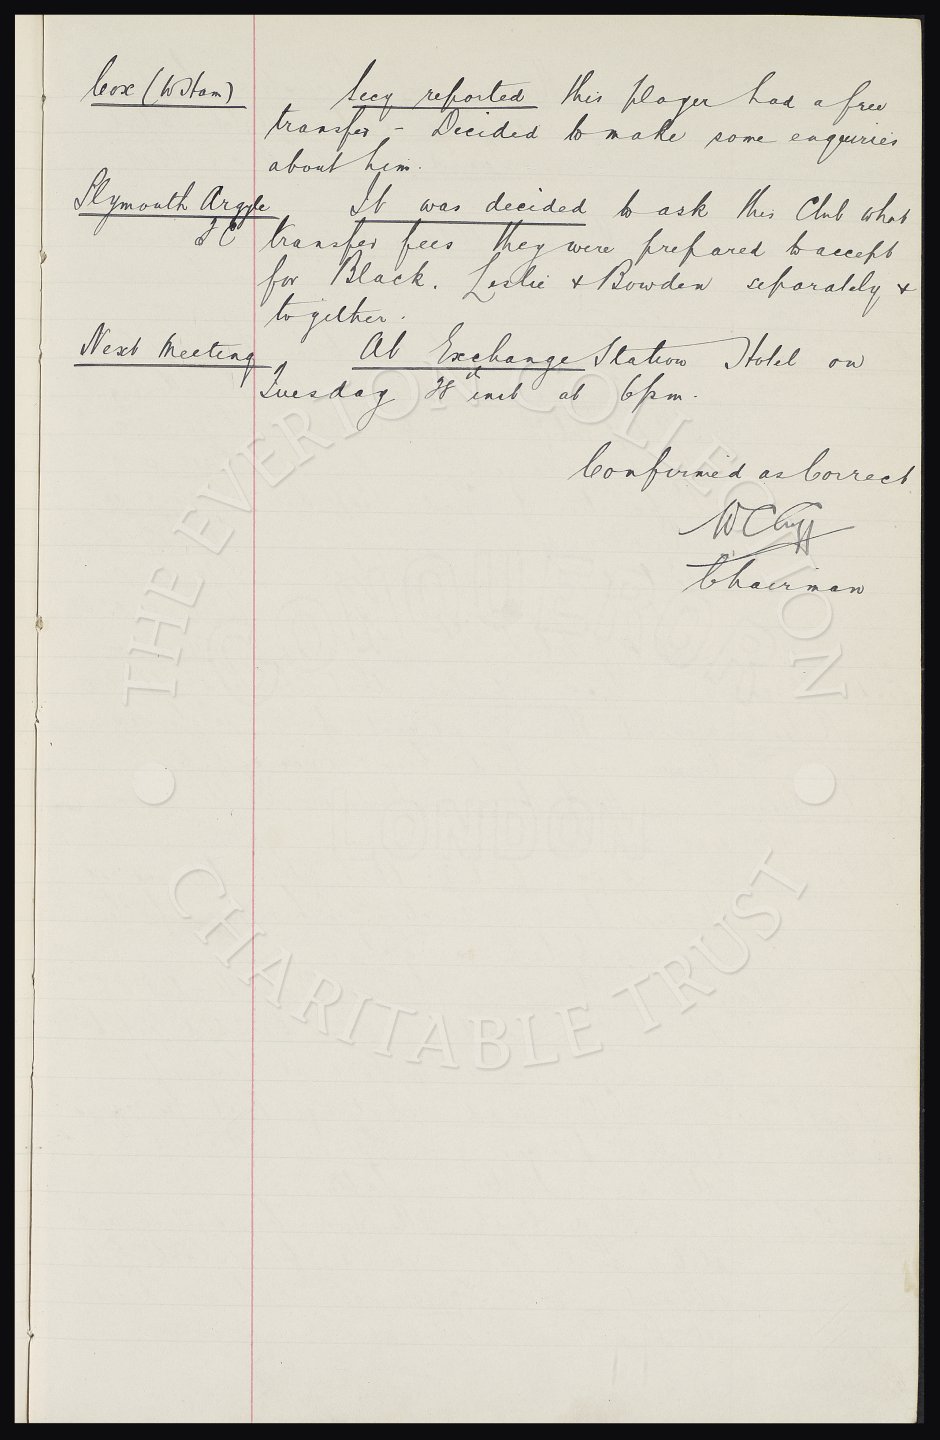 Cox (W Ham) Secy reported this player had a free
transfer - Decided to make some enquiries
about him.
Plymouth Argyle It was decided to ask this Club what
F C transfer fees they were prepared to accept
for Black. Leslie & Bowden separately &
together.
Next Meeting At Exchange Station Hotel on
Tuesday 28th inst at 6pm.
Confirmed as Correct
W C Cuff
Chairman
THE EVERTON COLLECTION
• CHARITABLE TRUST •
LONDON